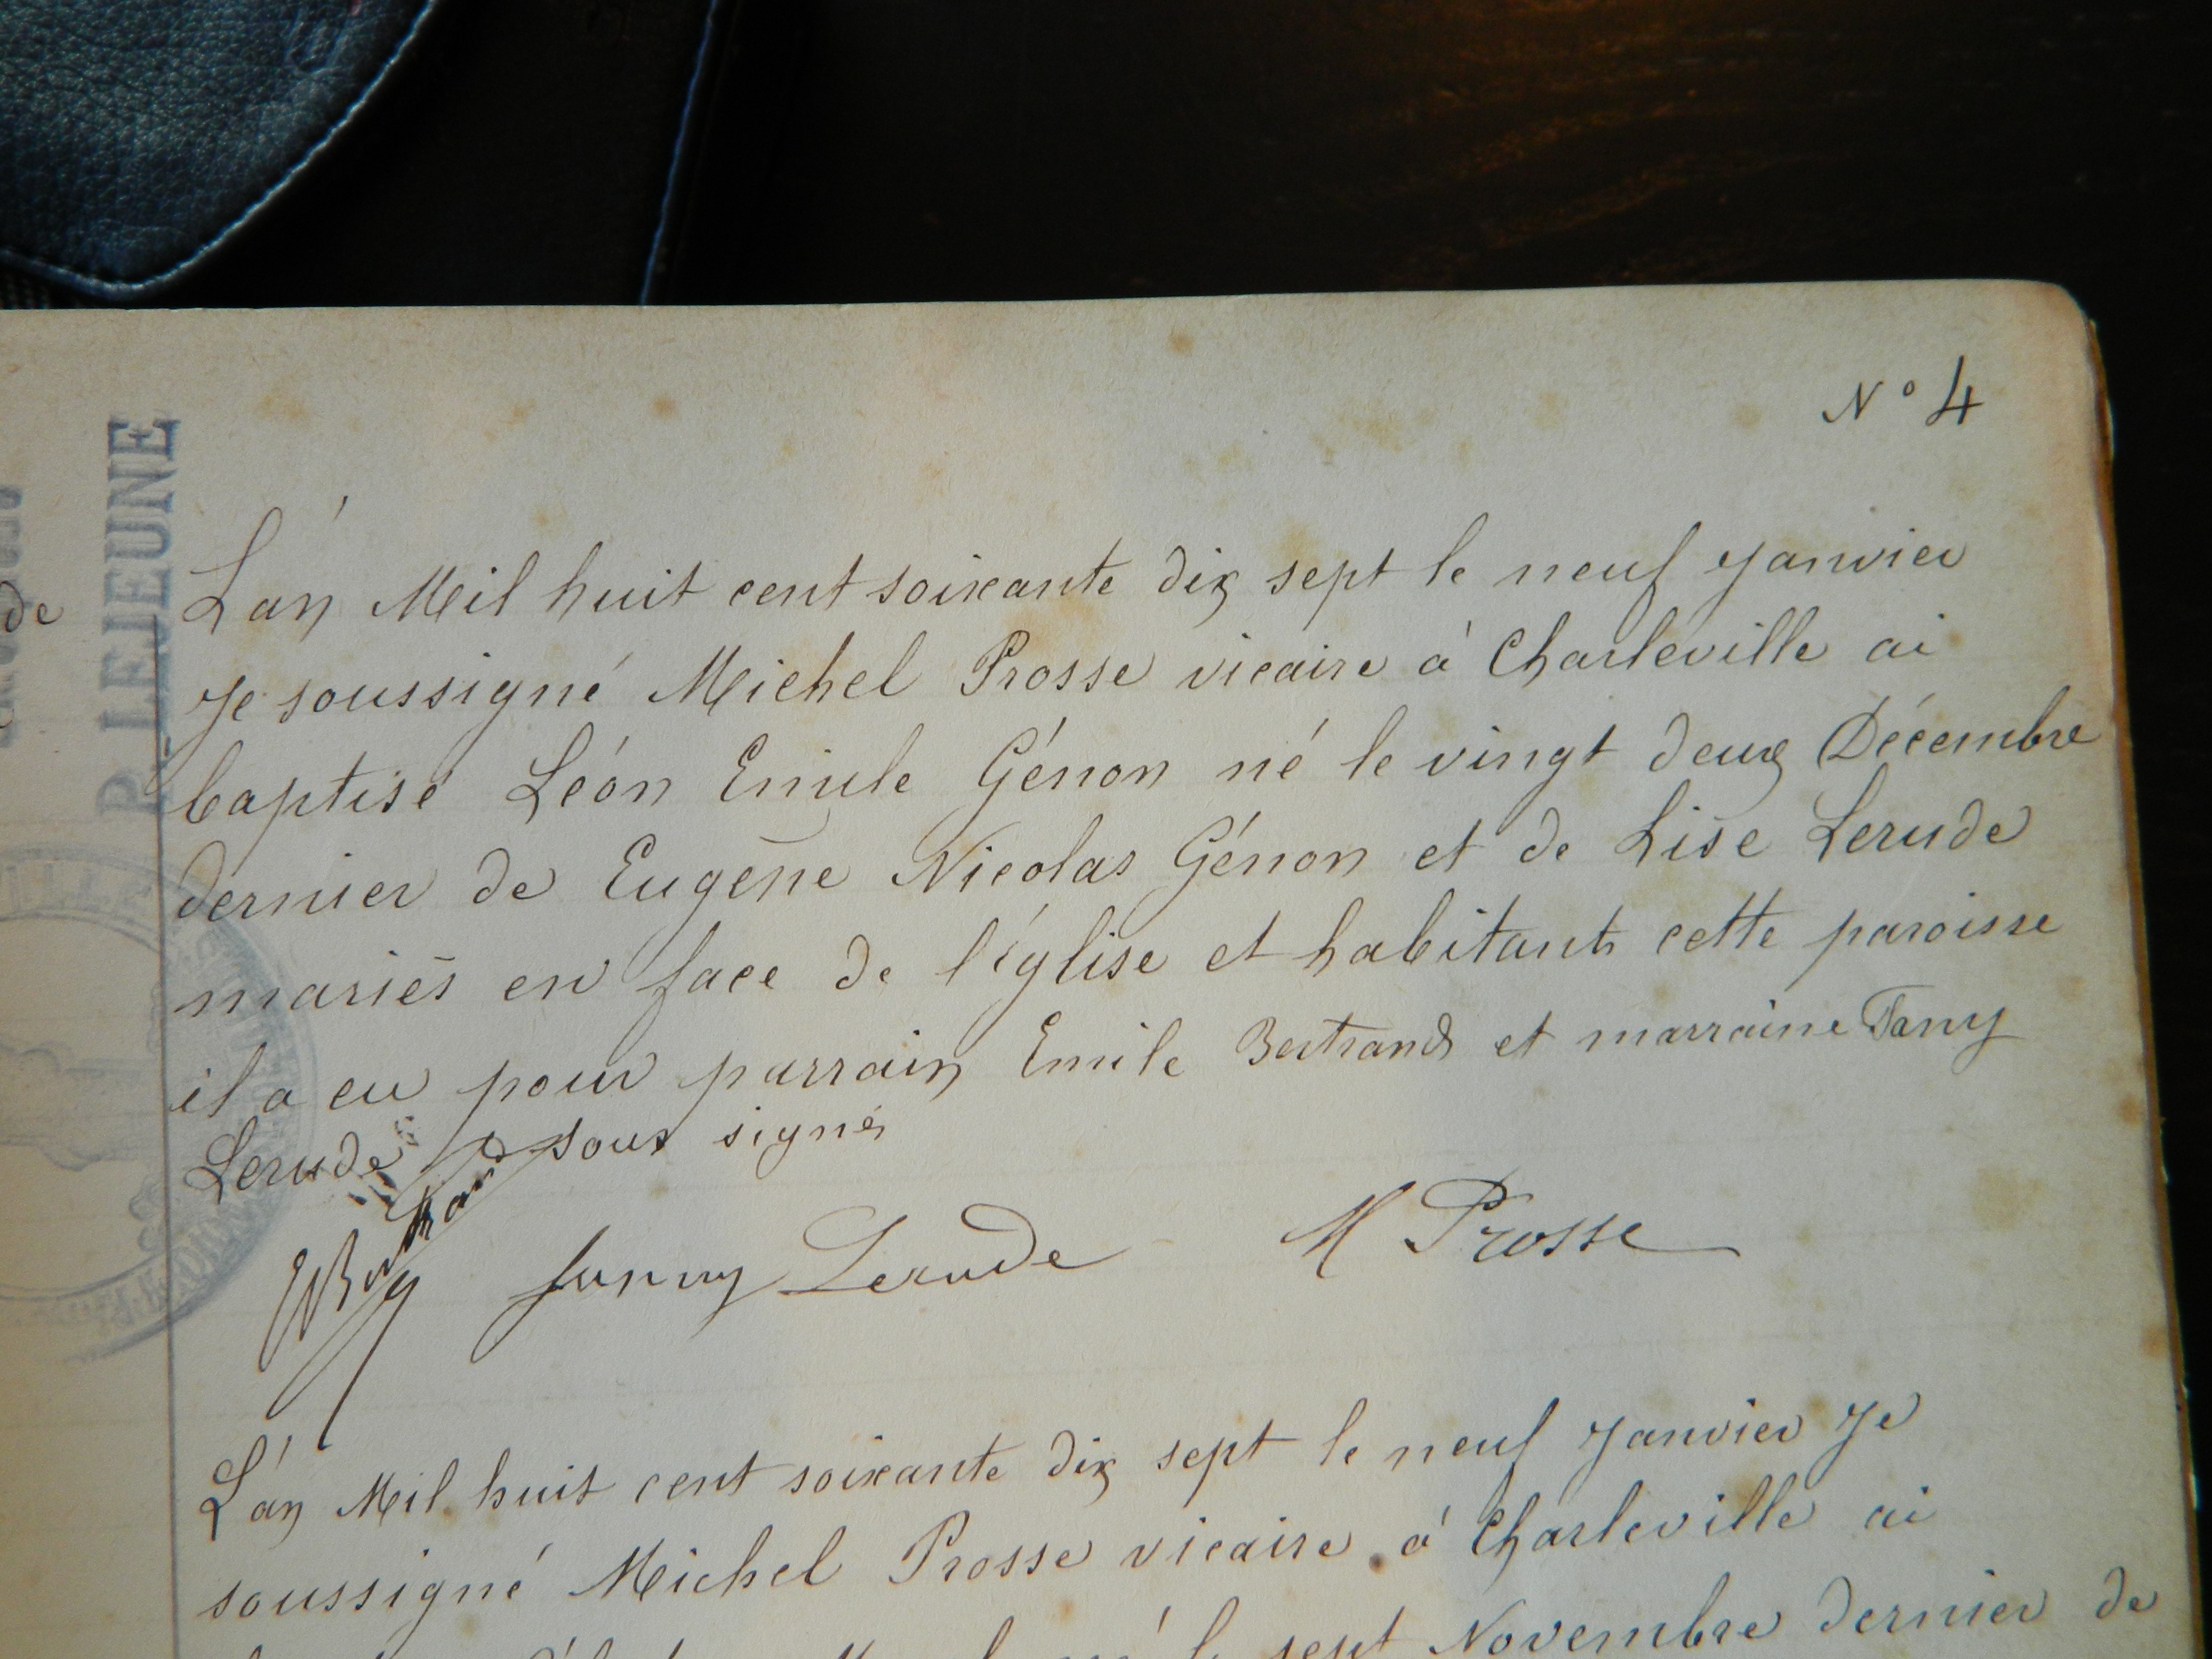 N° 4
de
P. LEJEUNE
L'an Mil huit cent soixante dix sept le neuf Janvier
Je soussigné Michel Prosse vicaire à Charleville ai
baptisé Léon Emile Génon né le vingt deux Décembre
dernier de Eugène Nicolas Génon et de Lise Lerude
mariés en face de l'église et habitants cette paroisse
il a eu pour parrain Emile Bertrand et marraine Fany
Lerude sous signés
EBertrand Fanny Lerude M Prosse
L'an Mil huit cent soixante dix sept le neuf Janvier Je
soussigné Michel Prosse vicaire à Charleville ai
né le sept Novembre dernier de